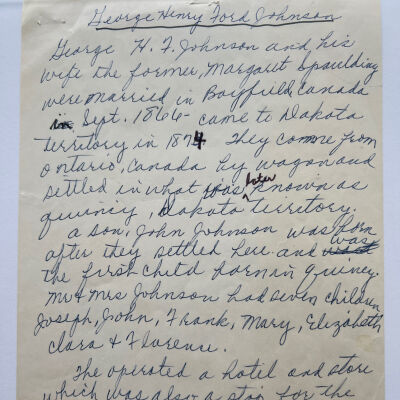 George Henry Ford Johnson
George H. F. Johnson and his
wife the former, Margaret Spaulding
were married in Bayfield, Canada
in Sept. 1866 - came to Dakota
territory in 1874. They come from
Ontario, Canada by wagon and
settled in what was later known as
Quincy, Dakota territory.
A son, John Johnson was born
after they settled here and was
the first child born in Quincy.
Mr & Mrs Johnson had seven children
Joseph, John, Frank, Mary, Elizabeth
Clara & Florence.
The operated a hotel and store
which was also a stop for the